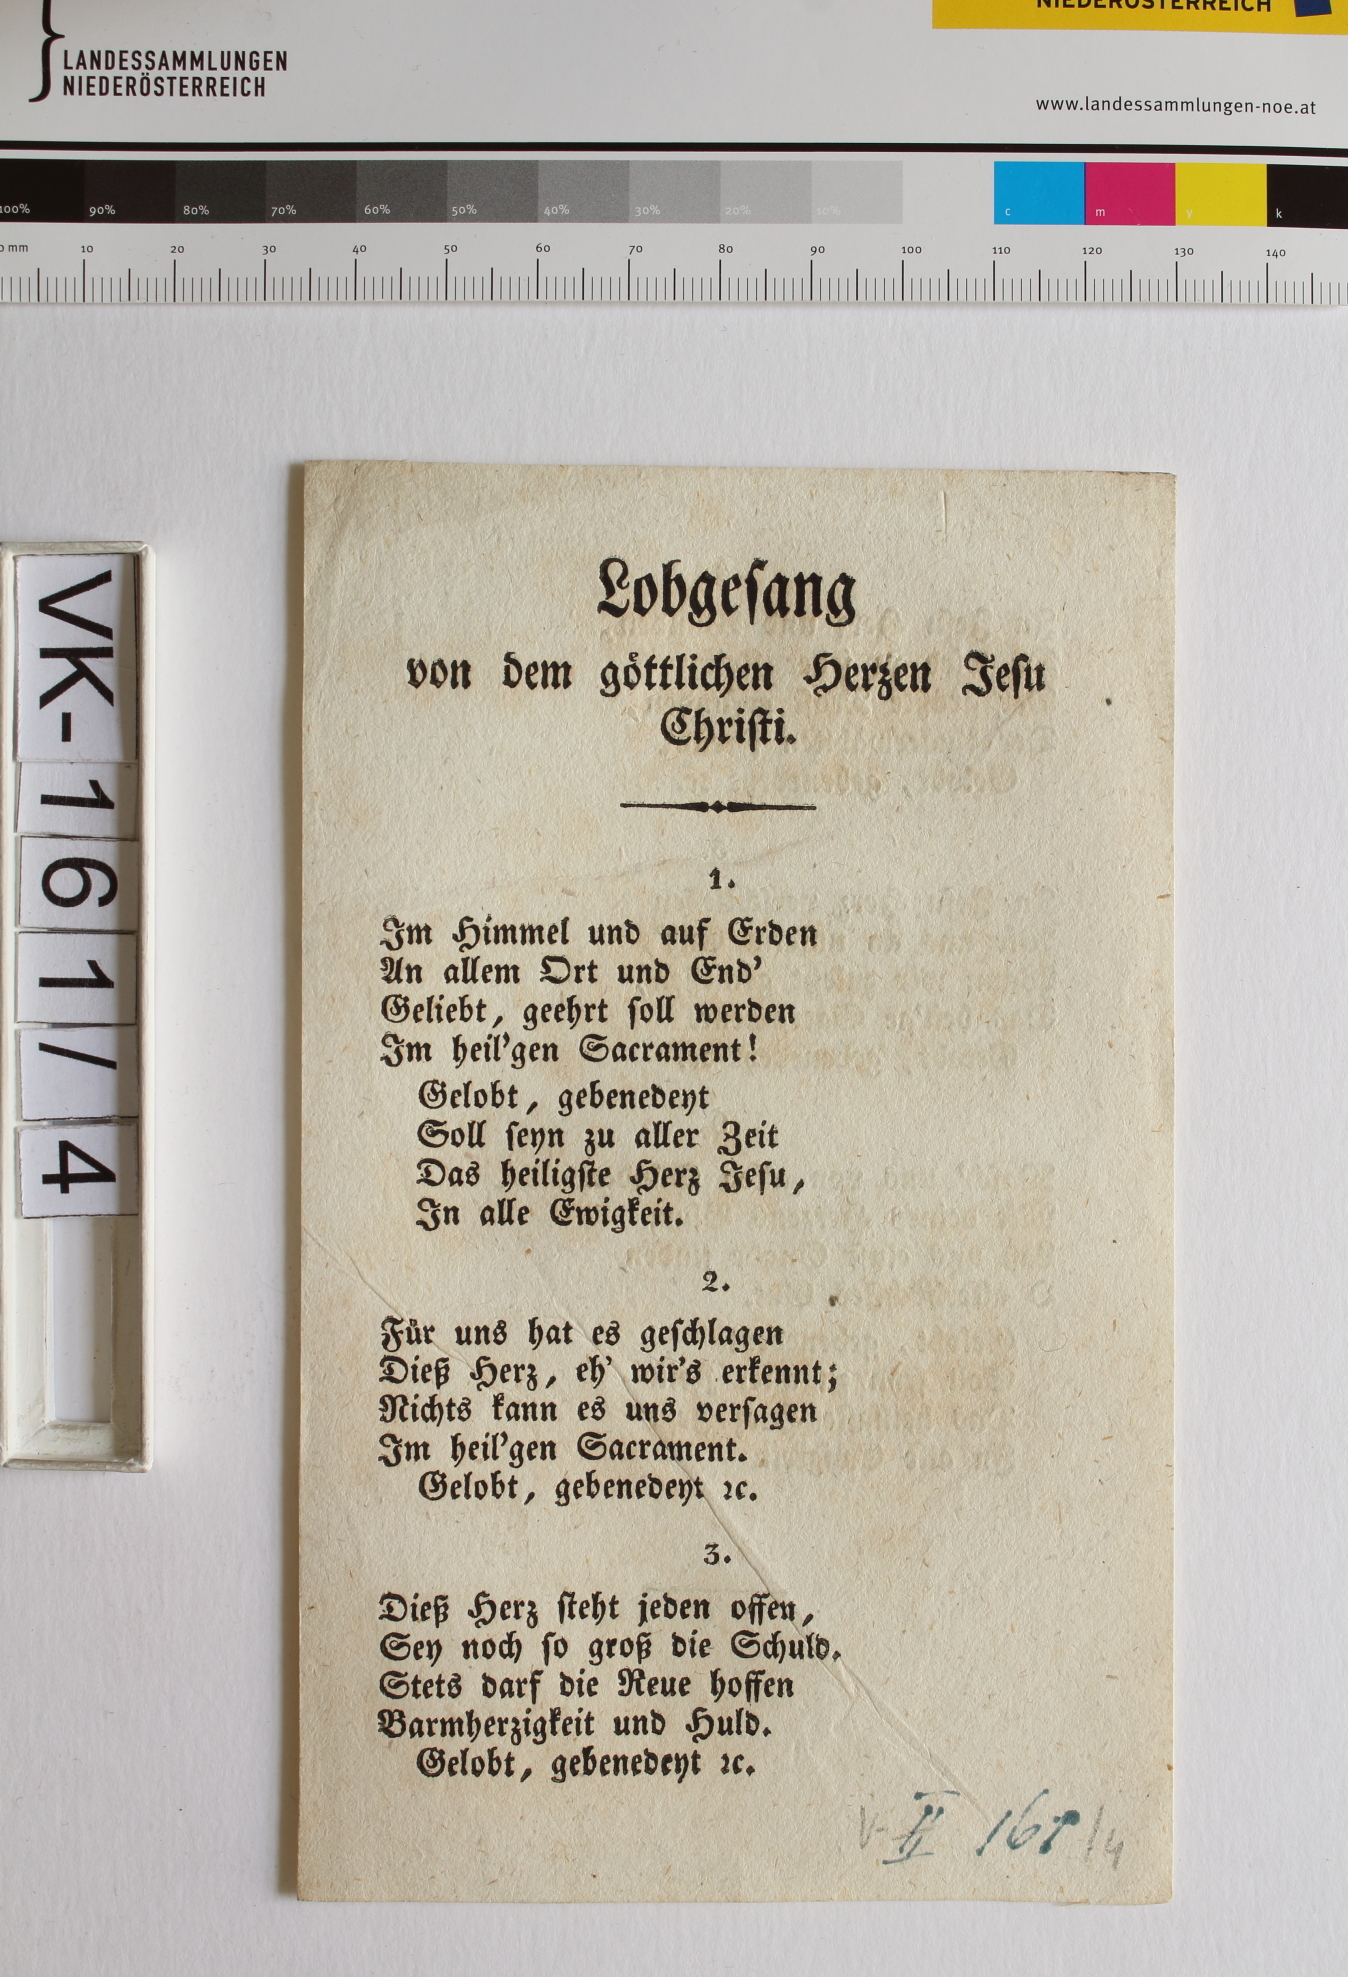 NIEDERÖSTERREICH
LANDESSAMMLUNGEN
NIEDERÖSTERREICH
www.landessammlungen-noe.at
100% 90% 80% 70% 60% 50% 40% 30% 20% 10% c m y k
0 mm 10 20 30 40 50 60 70 80 90 100 110 120 130 140
VK-161/4
Lobgeſang
von dem göttlichen Herzen Jeſu
Chriſti.
1.
Im Himmel und auf Erden
An allem Ort und End’
Geliebt, geehrt ſoll werden
Im heil’gen Sacrament!
Gelobt, gebenedeyt
Soll ſeyn zu aller Zeit
Das heiligſte Herz Jeſu,
In alle Ewigkeit.
2.
Für uns hat es geſchlagen
Dieß Herz, eh’ wir’s erkennt;
Nichts kann es uns verſagen
Im heil’gen Sacrament.
Gelobt, gebenedeyt ꝛc.
3.
Dieß Herz ſteht jeden offen,
Sey noch ſo groß die Schuld.
Stets darf die Reue hoffen
Barmherzigkeit und Huld.
Gelobt, gebenedeyt ꝛc.
V-II 161/4